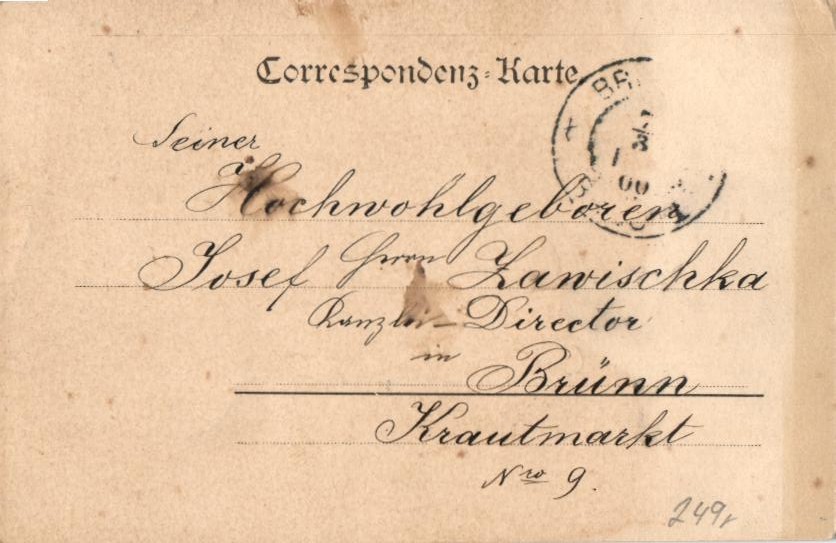 Correspondenz-Karte
Seiner
Hochwohlgeboren
Herrn
Josef Zawischka
Kanzlei-Director
in
Brünn
Krautmarkt
Nro 9.
249